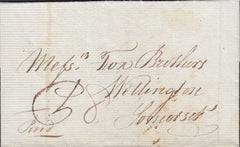 Messrs Fox Brothers
Wellington
Somerset
Paid